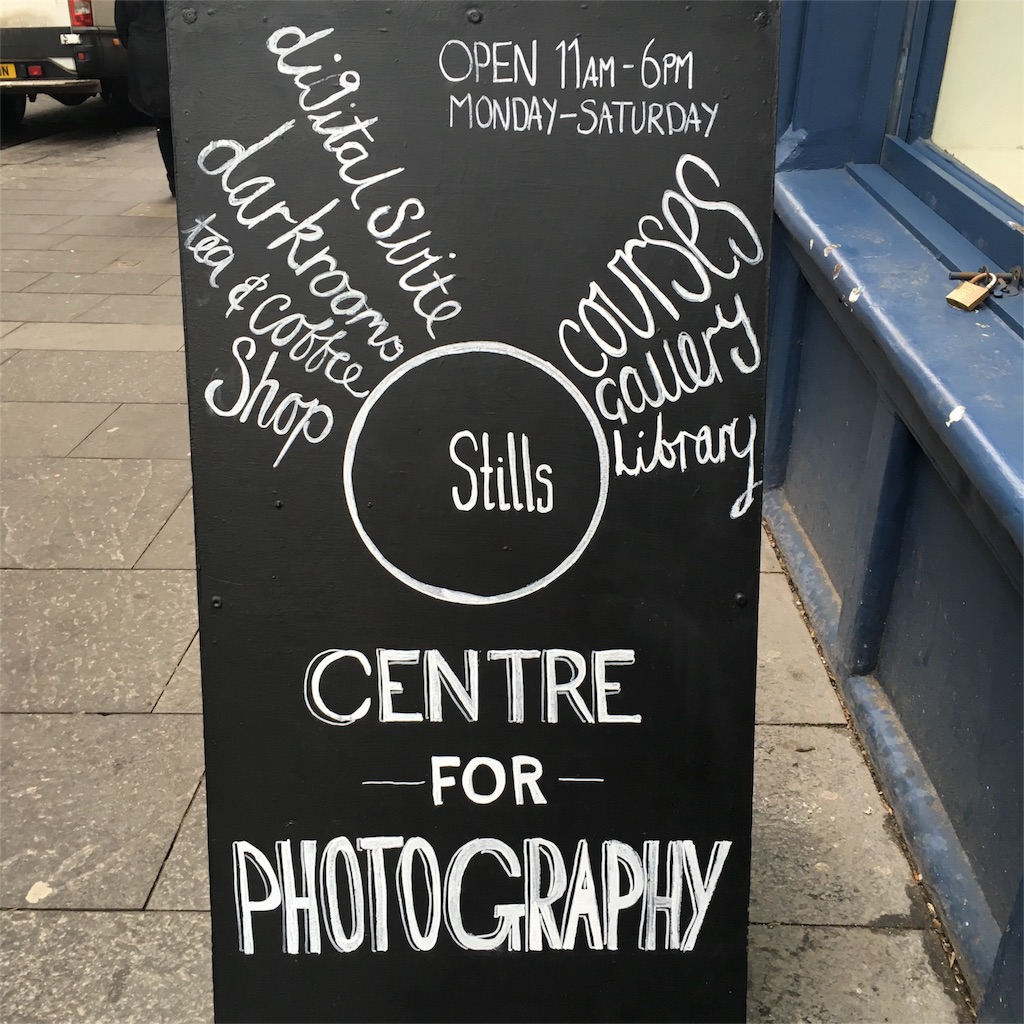 OPEN 11AM-6PM
MONDAY-SATURDAY
digital Suite
darkrooms
tea & Coffee
Shop
courses
gallery
Library
Stills
CENTRE
— FOR —
PHOTOGRAPHY